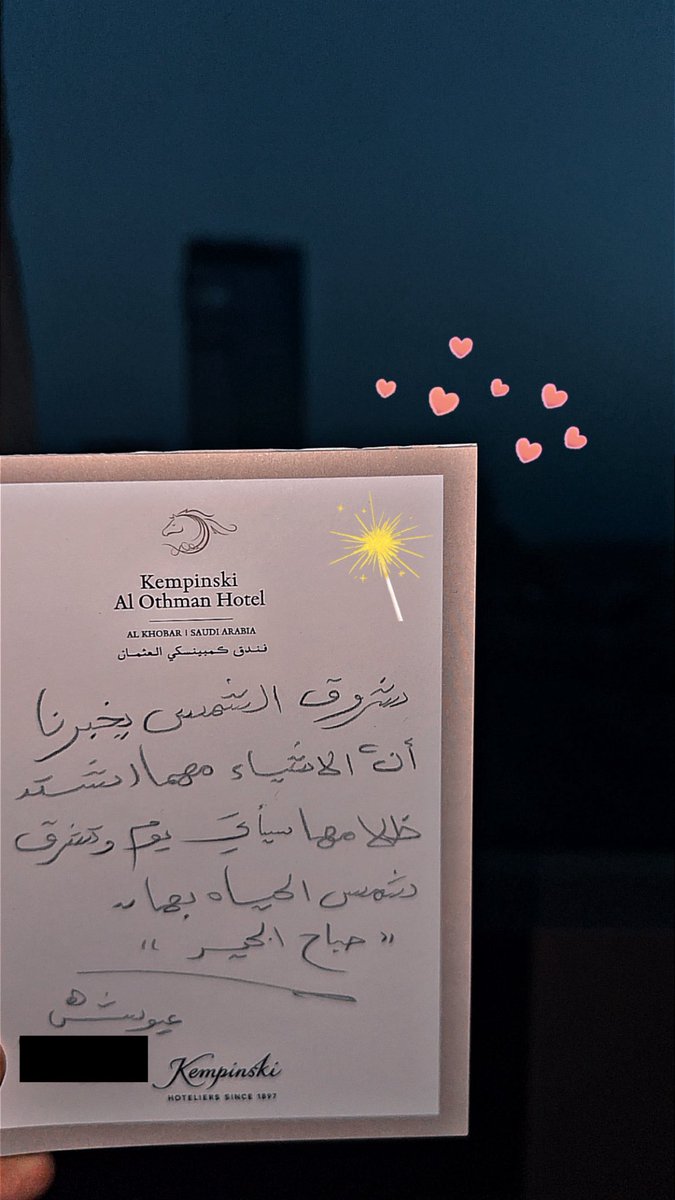 Kempinski
Al Othman Hotel
AL KHOBAR | SAUDI ARABIA
فندق كمبينسكي العثمان
شروق الشمس يخبرنا
أنّ الاشياء مهما اشتد
ظلامها سيأتي يوم وتشرق
شمس الحياه بها
" صباح الخير "
عيوشه
Kempinski
HOTELIERS SINCE 1897